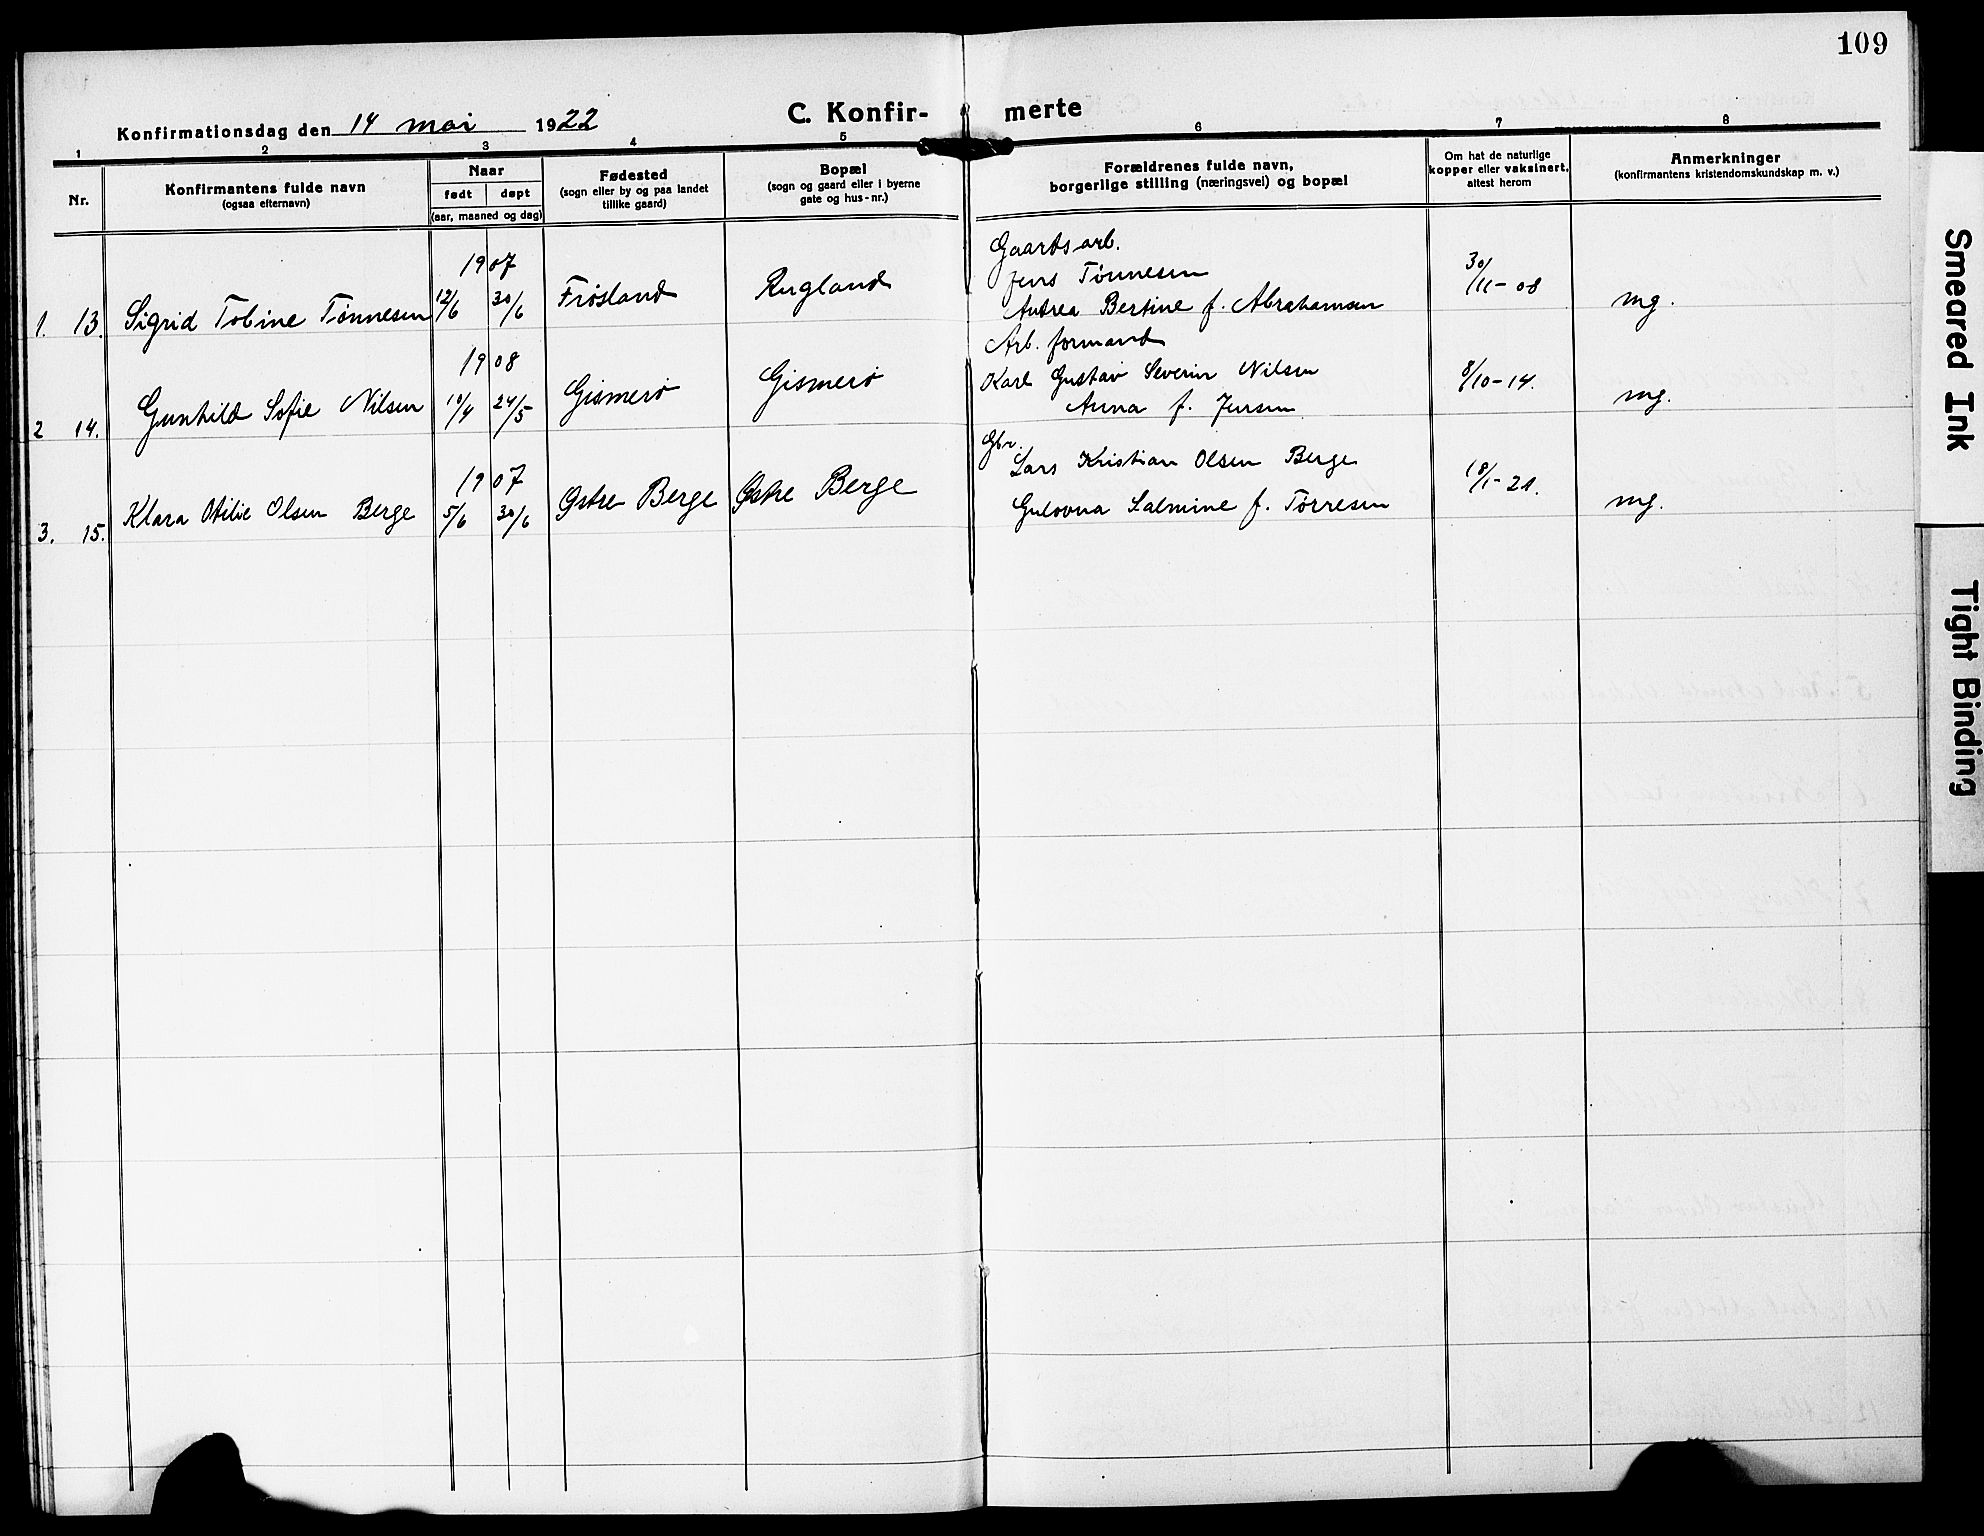 109
C. Konfirmerte
Konfirmationsdag den 14 mai 1922
1 2 3 4 5 6 7 8
Nr.
Konfirmantens fulde navn
(ogsaa efternavn)
Naar
født døpt
(aar, maaned og dag)
Fødested
(sogn eller by og paa landet
tillike gaard)
Bopæl
(sogn og gaard eller i byerne
gate og hus-nr.)
Forældrenes fulde navn,
borgerlige stilling (næringsvei) og bopæl
Om hat de naturlige
kopper eller vaksinert,
attest herom
Anmerkninger
(konfirmantens kristendomskundskap m. v.)
1. 13. Sigrid Tobine Tønnesen 1907 12/6 30/6 Frøsland Rugland
Gaardsarb.
Jens Tønnesen
Andrea Bertine f. Abrahamsen
30/11-08 mg.
2 14. Gunhild Sofie Nilsen 1908 10/4 24/5 Gismerø Gismerø
Arb. formand
Karl Gustav Severin Nilsen
Anna f. Jensen
8/10-14. mg.
3. 15. Klara Otilie Olsen Berge 1907 5/6 30/6 Østre Berge Østre Berge
Gbr.
Lars Kristian Olsen Berge
Gulovna Salmine f. Tørresen
18/1-21. mg.
Smeared Ink
Tight Binding